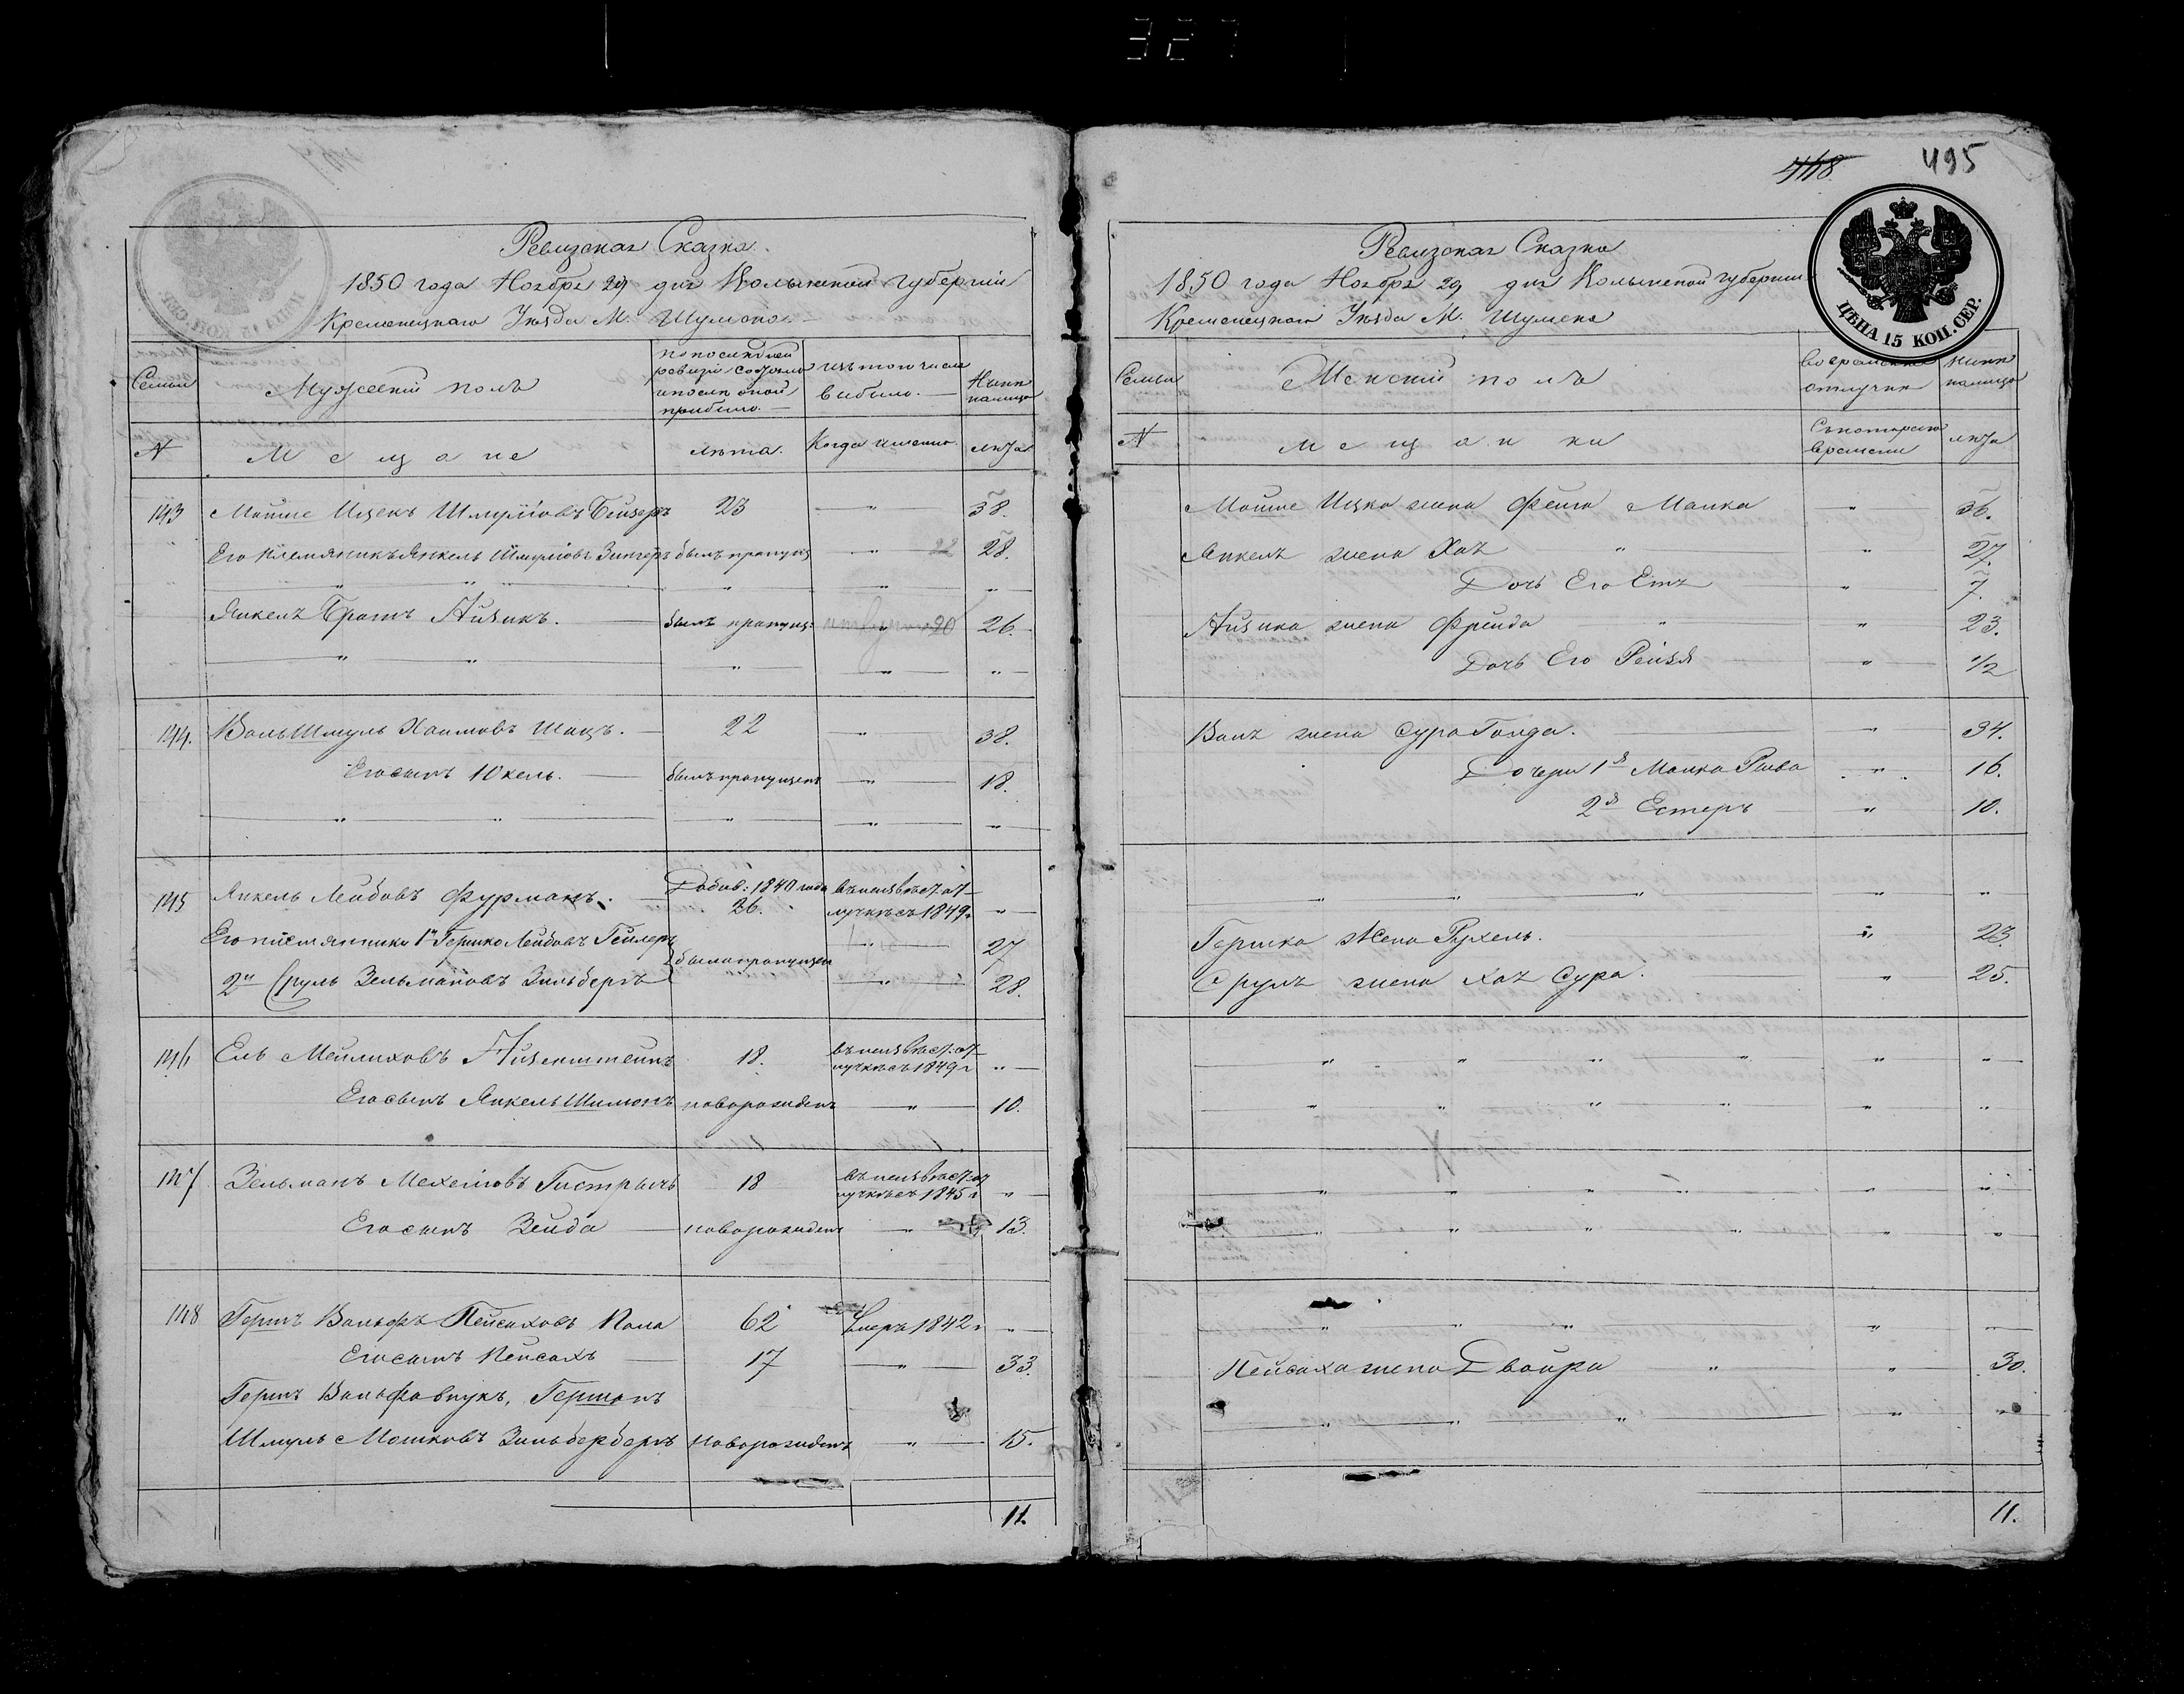 327
Ревизская Сказка.
1850 года Ноября 29 дня Волынской Губернии
Кременецкаго Уезда М. Шумска
Семьи
Мужеский полъ
по последней
ревизии состояло
и после оной
прибыло.
изъ того числа
выбыло.
Ныне
налицо
N
Мещане
лета.
Когда именно.
лета
143 Мошие Ицекъ Шмулiовъ Бейзеръ 23 " 38.
Его племяникъ Янкель Шмулiовъ Зингеръ былъ пропущ " 22 28.
" " " " "
Янкеля Братъ Айзикъ. былъ пропущ: " 20 26.
" " " " "
144. Воль Шмуль Хаимовъ Шацъ. 22 " 38.
Его сынъ Юкель. былъ пропущенъ " 18.
" " " " "
145 Янкель Лейбовъ Фурманъ. Добав: 1840 года 26. въ неизвест: от-
лучке съ 1849г "
Его племянники 1й Гершко Лейбовъ Гейлеръ " 27
были пропущен
2й Сруль Зельмановъ Зильберъ " 28.
146 Ель Мейлиховъ Айзенштейнъ 18. въ неизвест: от-
лучке съ 1849г "
Его сынъ Янкель Шимонъ новорожденъ " 10.
147 Зельманъ Мехелiовъ Гистрычъ 18 въ неизвест: от-
лучке съ 1845г "
Его сынъ Зейда новорожденъ " 13.
148 Гершъ Вольфъ Пейсаховъ Кола 62 Умеръ 1842г "
Его сынъ Пейсахъ 17 " 33.
Гершъ Вольфа внукъ, Гершонъ
Шмуль Мошковъ Зильберберъ новорожденъ " 15.
11.
448
495
ЦѢНА 15 КОП. СЕР.
Ревизская Сказка
1850 года Ноября 29 дня Волынской Губернии
Кременецкаго Уезда М. Шумска
Семьи
Женский полъ
Во временной
отлучке
Ныне
налицо
N
мещанки
Съ котораго
времени
лета
Мошие Ицка жена Фейга Малка " 36.
Янкеля жена Хая " " 27.
Дочь Его Етя " 7.
Айзика жена Фрейда " " 23.
Дочь Его Рейзя " 1/2
Воля жена Сура Голда. " 34.
Дочери 1я Малка Рыва " 16.
2я Естеръ " 10.
" " " "
Гершка Жена Рухель. " 23.
Сруля жена Хая Сура. " 25.
" " " " " "
" " " " " "
" " " " " "
" " " " " "
" " " " "
Пейсаха жена Двойра " " 30.
" " " " "
11.